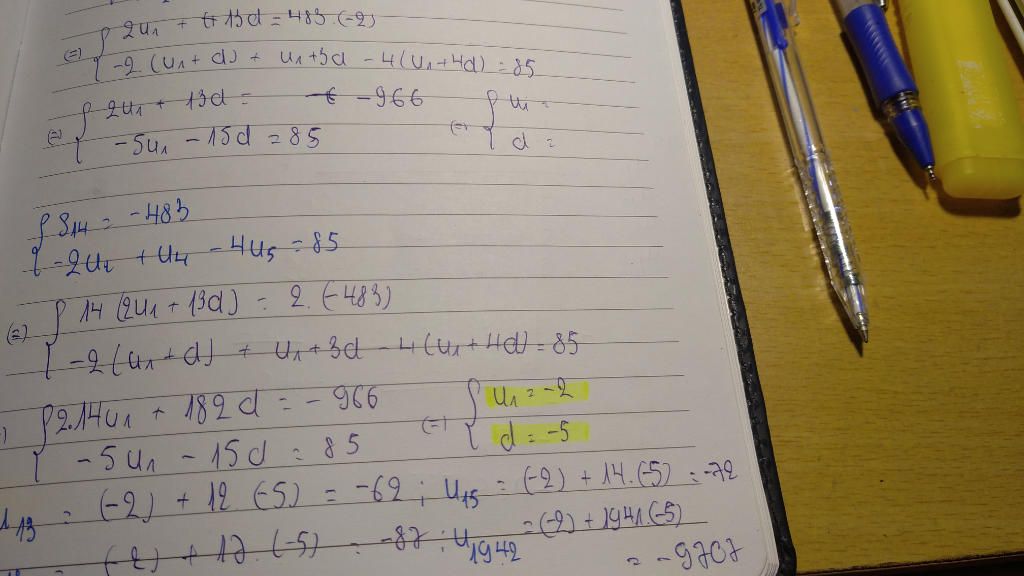 (=) { 2u1 + 13d = 483.(-2)
-2.(u1 + d) + u1+3d - 4(u1+4d) = 85
(=) { 2u1 + 13d = -966 (=) { u1 =
-5u1 - 15d = 85 d =
{ S14 = -483
-2u2 + u4 - 4u5 = 85
(=) { 14 (2u1 + 13d) = 2.(-483)
-2(u1+d) + u1+3d - 4(u1+4d) = 85
{ 2.14u1 + 182d = -966 (=) { u1 = -2
-5u1 - 15d = 85 d = -5
13 = (-2) + 12.(-5) = -62 ; u15 = (-2) + 14.(-5) = -72
(-2) + 17.(-5) = -87 ; u1942 = (-2) + 1941.(-5)
= -9707